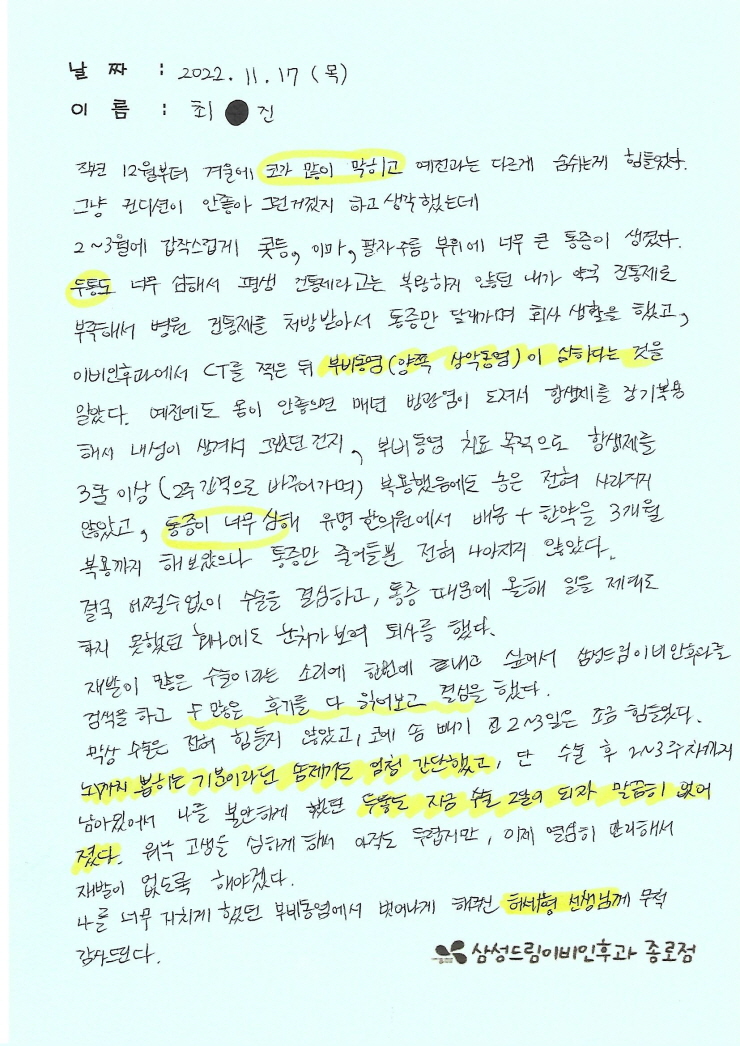 날 짜 : 2022. 11. 17 (목)
이 름 : 최 진
작년 12월부터 겨울에 코가 많이 막히고 예전과는 다르게 숨쉬는게 힘들었다.
그냥 컨디션이 안좋아 그런거겠지 하고 생각했는데
2~3월에 갑작스럽게 콧등, 이마, 팔자주름 부위에 너무 큰 통증이 생겼다.
두통도 너무 심해서 평생 진통제라고는 복용하지 않던 내가 약국 진통제로
부족해서 병원 진통제를 처방받아서 통증만 달래가며 회사 생활을 했고,
이비인후과에서 CT를 찍은 뒤 부비동염(양쪽 상악동염)이 심하다는 것을
알았다. 예전에도 몸이 안좋으면 매년 방광염이 도져서 항생제를 장기복용
해서 내성이 생겨서 그랬던건지, 부비동염 치료 목적으로 항생제를
3달 이상 (2주 간격으로 바꾸어가며) 복용했음에도 농은 전혀 사라지지
않았고, 통증이 너무 심해 유명 한의원에서 배농 + 한약을 3개월
복용까지 해보았으나 통증만 줄어들뿐 전혀 나아지지 않았다.
결국 어쩔수없이 수술을 결심하고, 통증 때문에 올해 일을 제대로
하지 못했던 회사에도 눈치가 보여 퇴사를 했다.
재발이 많은 수술이라는 소리에 한번에 끝내고 싶어서 삼성드림이비인후과를
검색을 하고 수많은 후기를 다 읽어보고 결심을 했다.
막상 수술은 전혀 힘들지 않았고, 코에 솜 빼기 전 2~3일은 조금 힘들었다.
뇌까지 뽑히는 기분이라던 솜제거도 엄청 간단했고, 단 수술 후 2~3주차까지
남아있어서 나를 불안하게 했던 두통도 지금 수술 2달이 되자 말끔히 없어
졌다. 워낙 고생을 심하게 해서 아직도 두렵지만, 이제 열심히 관리해서
재발이 없도록 해야겠다.
나를 너무 지치게 했던 부비동염에서 벗어나게 해주신 허세형 선생님께 무척
감사드린다.
삼성드림이비인후과 종로점